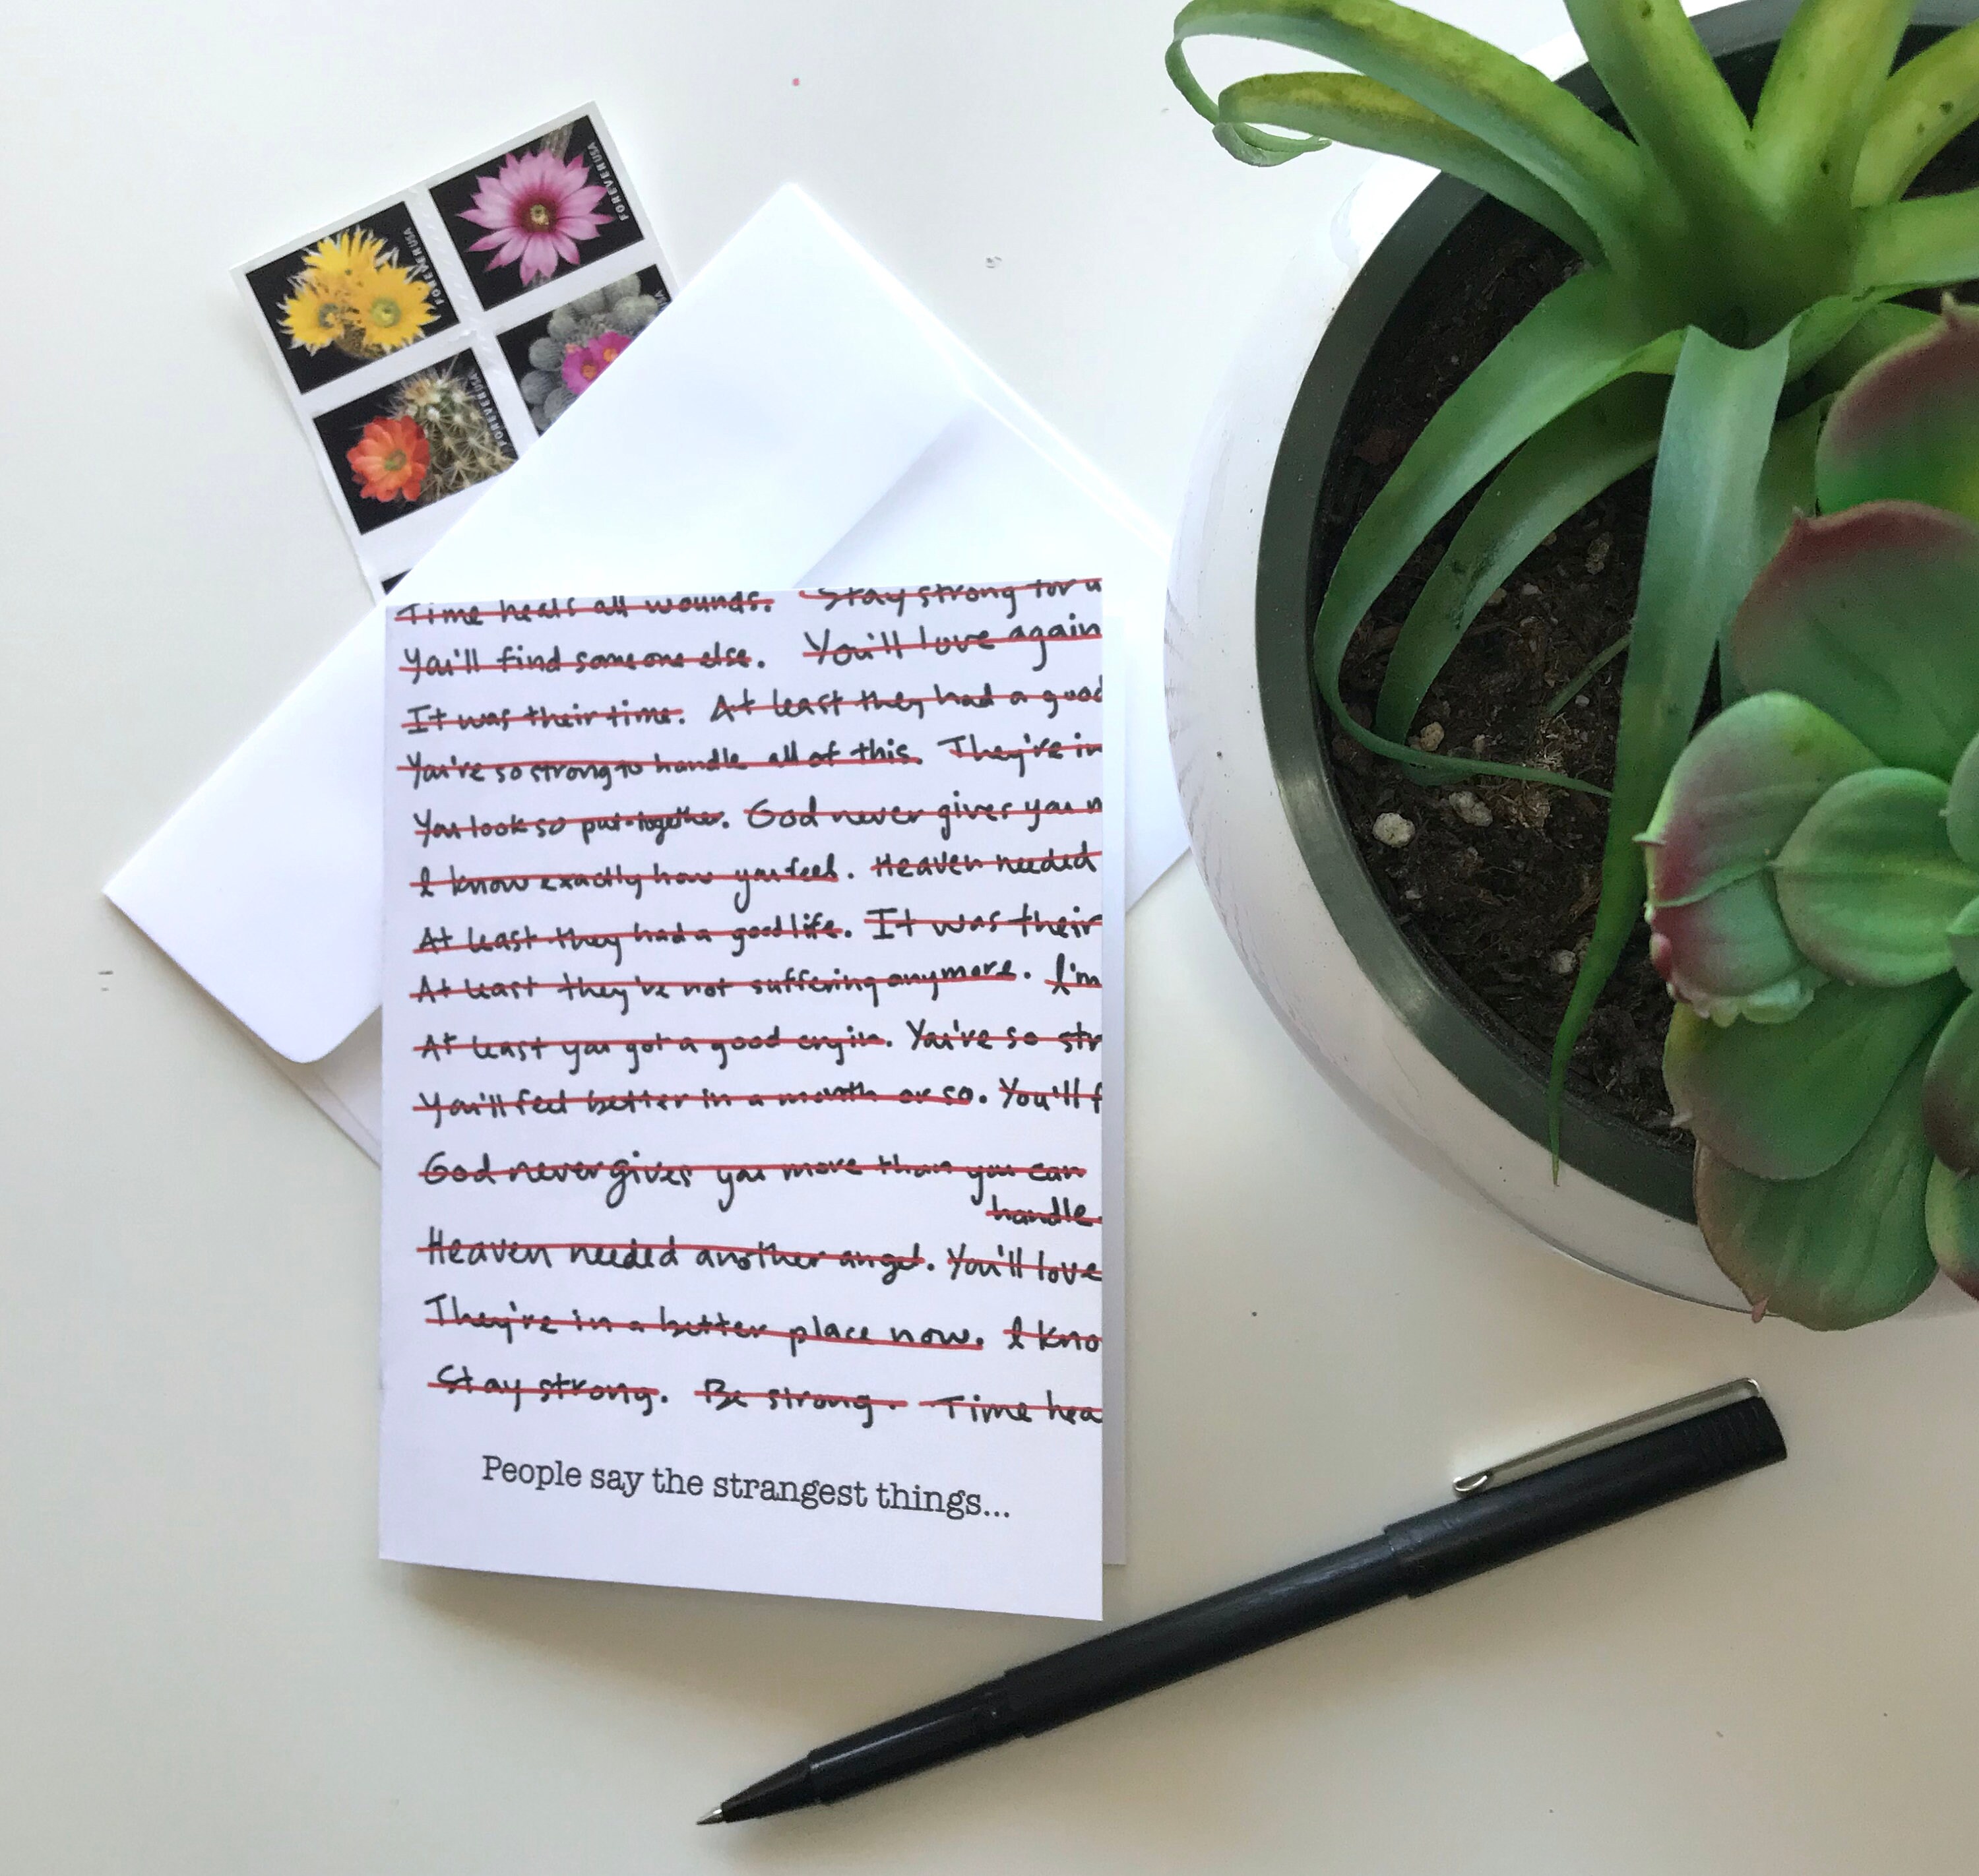 FOREVER USA
FOREVER USA
FOREVER USA
Time heals all wounds. Stay strong for
You'll find someone else. You'll love again
It was their time. At least they had a good
You're so strong to handle all of this. They're in
You look so put-together. God never gives you
I know exactly how you feel. Heaven needed
At least they had a good life. It was their
At least they've not suffering anymore. I'm
At least you got a good cry in. You've so str
You'll feel better in a month or so. You'll f
God never gives you more than you can
handle.
Heaven needed another angel. You'll love
They're in a better place now. I kno
Stay strong. Be strong. Time hea
People say the strangest things...